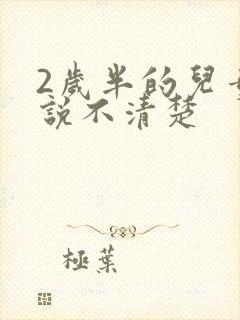 2歲半的兒
說不清楚
極葉